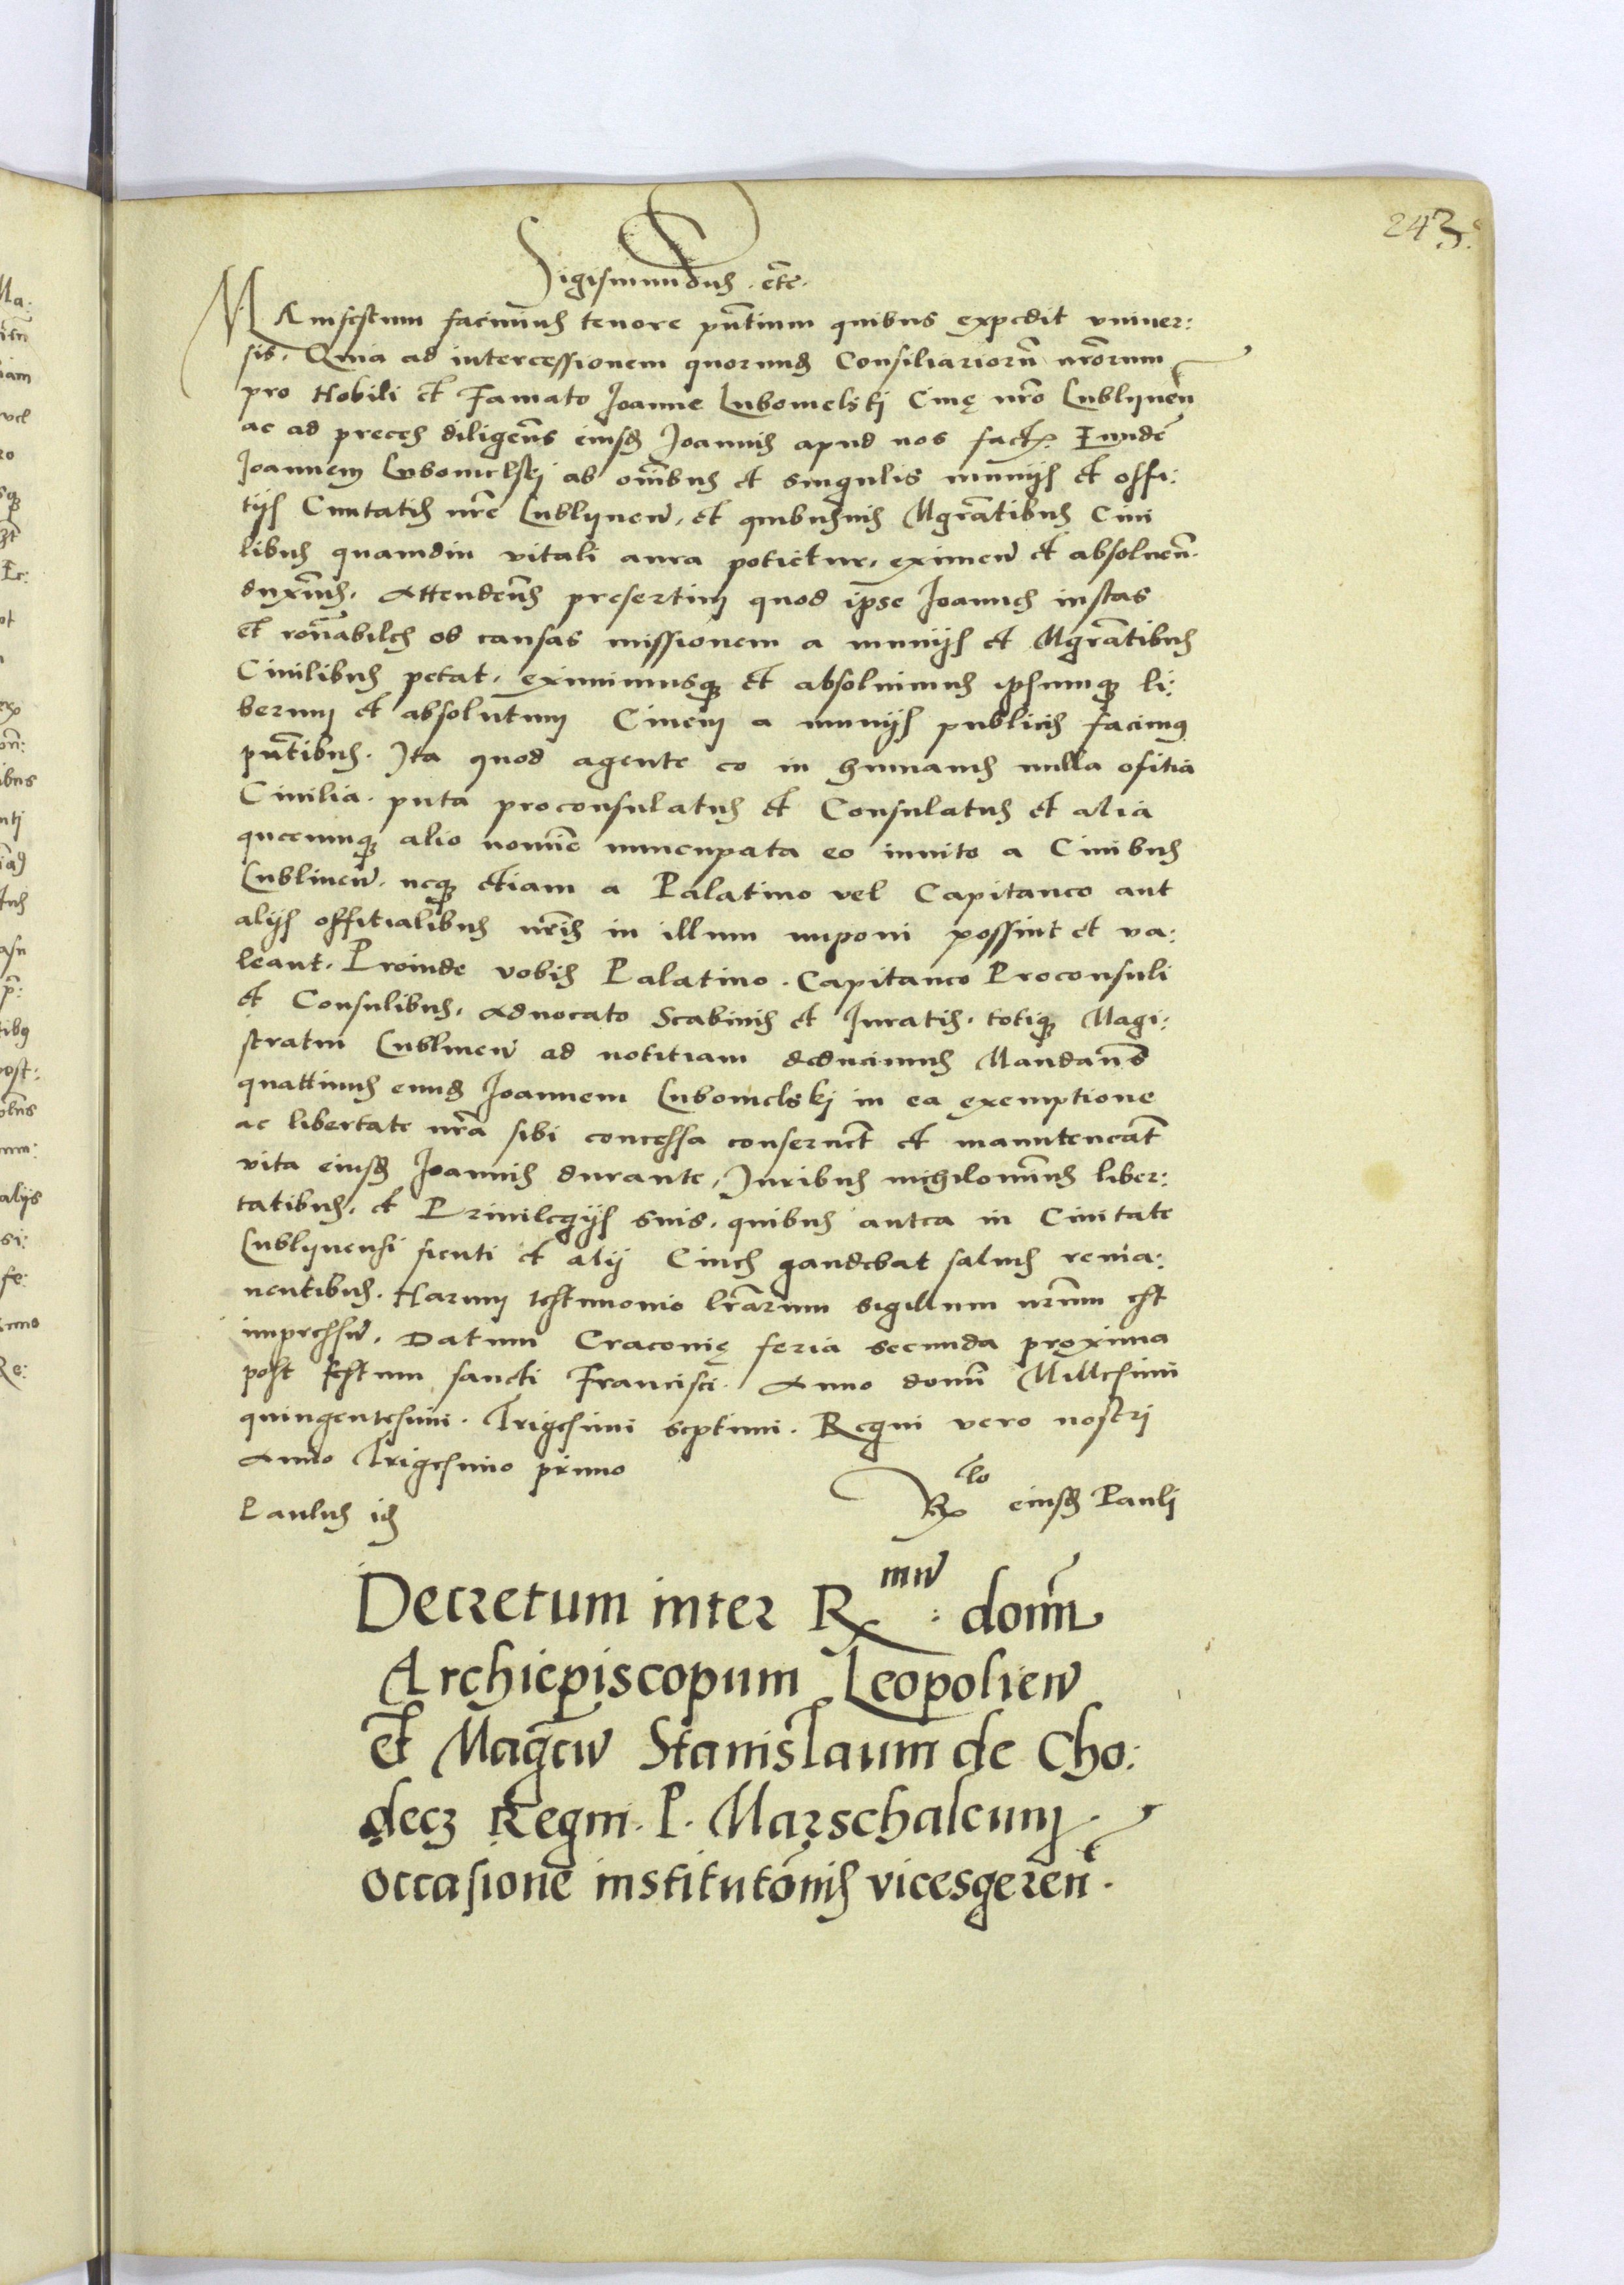 243.
Sigismundus . etc.
MAnifestum facimus tenore pñtium quibus expedit vniuer:
sis. Quia ad intercessionem quorund Consiliariorũ nrõrum
pro Nobili et Famato Joanne Lubomelski Ciuę nrõ Lublyneñ
ac ad preces diligeñs eiusd Joannis apud nos fact. Eundẽ
Joannem Lubomelskj ab oĩnbus et singulis munijs et offi:
tijs Ciuitatis nrẽ Lublyneñ, et quibusuis Mgrãtibus Ciui
libus quamdiu vitali aura potietur, eximeñ et absolueñ.
duxĩmus. Attendeñs presertim quod ipse Joannes iustas
et rõnabiles ob causas missionem a munijs et Mgrãtibus
Ciuilibus petat, eximimusq et absoluimus ipsumq li:
berum et absolutum Ciuem a munijs publicis facimus
pñtibus. Ita quod agente eo in humanis nulla ofitia
Ciuilia. puta proconsulatus et Consulatus et alia
quecunq alio nomĩe nuncupata eo inuito a Ciuibus
Lublineñ. neq etiam a Palatino vel Capitaneo aut
alijs offitialibus nrĩs in illum imponi possint et va:
leant. Proinde vobis Palatino. Capitaneo Proconsuli
et Consulibus, Aduocato Scabinis et Juratis. totiq Magi:
stratui Lublineñ ad notitiam deducimus Mandañs
quattinus eund Joannem Lubomelskj in ea exemptione
ac libertate nrã sibi concessa conseruẽt et manuteneãt
vita eiusd Joannis durante, Juribus nihilomĩnus liber:
tatibus, et Priuilegijs suis. quibus antea in Ciuitate
Lublynensi sicuti et alij Ciues gaudebat saluis rema:
nentibus. Harum testimonio lrãrum sigillum nrũm est
impressũ. Datum Cracouię feria secunda proxima
post festum sancti Francisci. Anno domĩ Millesimi
quingentesimi. Trigesimi septimi. Regni vero nostri
Anno Trigesimo primo
Paulus id Rlo eiusd Pauli
Decretum inter Rmũ: domĩ
Archiepiscopum Leopolieñ
et Magcũ Stanislaum de Cho:
decz Regni. P. Marschalcum.
occasione institutõnis vicesgereñ.